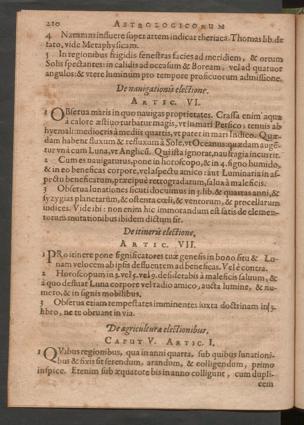 210 ASTROLOGICORUM
4. Nam transfluere super artem indicat theriaca. Thomas lib. de
tato, vide Metaphysicam.
5 In regionibus frigidis fenestras facies ad meridiem, & ortum
Solis spectantes: in calidis ad occasum & Boream, vel ad quatuor
angulos: & vtere luminum pro tempore proficuorum admissione.
De navigationis electione.
ARTIC. VI.
1 OBserua maris in quo nauigas proprietates. Crassa enim aqua
à calore æstiuo turbatur magis, vt in mari Persico: tenuis ab
hyemali: mediocris à mediis quartis, vt patet in mari
dam habent fluxum & refluxum à Sole, vt Oceanus: quædam augen-
tur vnà cum Luna, vt Anglicū. Qui ista ignorat, naufragia incurrit.
2 Cum es nauigaturus, pone in horoscopo, & in 4. signo humido,
& in eo beneficas corpore, vel aspectu amico: aut Luminaria in as-
pectu beneficarum, præcipuè retrogradarum, salua à maleficis.
3 Obserua lunationes sicuti docuimus in 3. lib. & quartas anni, &
syzygias planetarum, & ostenta cœli, & ventorum, & procellarum
indices. Vide ibi: non enim hic immorandum est satis de elemen-
torum mutationibus ibidem dictum sit.
De itineris electione,
ARTIC. VII.
1 PRo itinere pone significatores tuæ genesis in bono situ & Lu-
nam velocem ab ipsis defluentem ad beneficas. Vel è contra.
2 Horoscopum in 5. vel 3. vel 9. desideratis à maleficis saluum, &
à quo defluat Luna corpore vel radio amico, aucta lumine, & nu-
mero, & in signis mobilibus.
3 Obserua etiam tempestates imminentes iuxta doctrinam in 3.
libro, ne te obruant in via.
De agriculturæ electionibus,
CAPUT V. ARTIC. I.
1 QVibus regionibus, qua in anni quarta, sub quibus lunationi-
bus & fixis sit serendum, arandum, & colligendum, primo
inspice. Etenim sub æquatore bis in anno colligunt, cum dupli-
cem